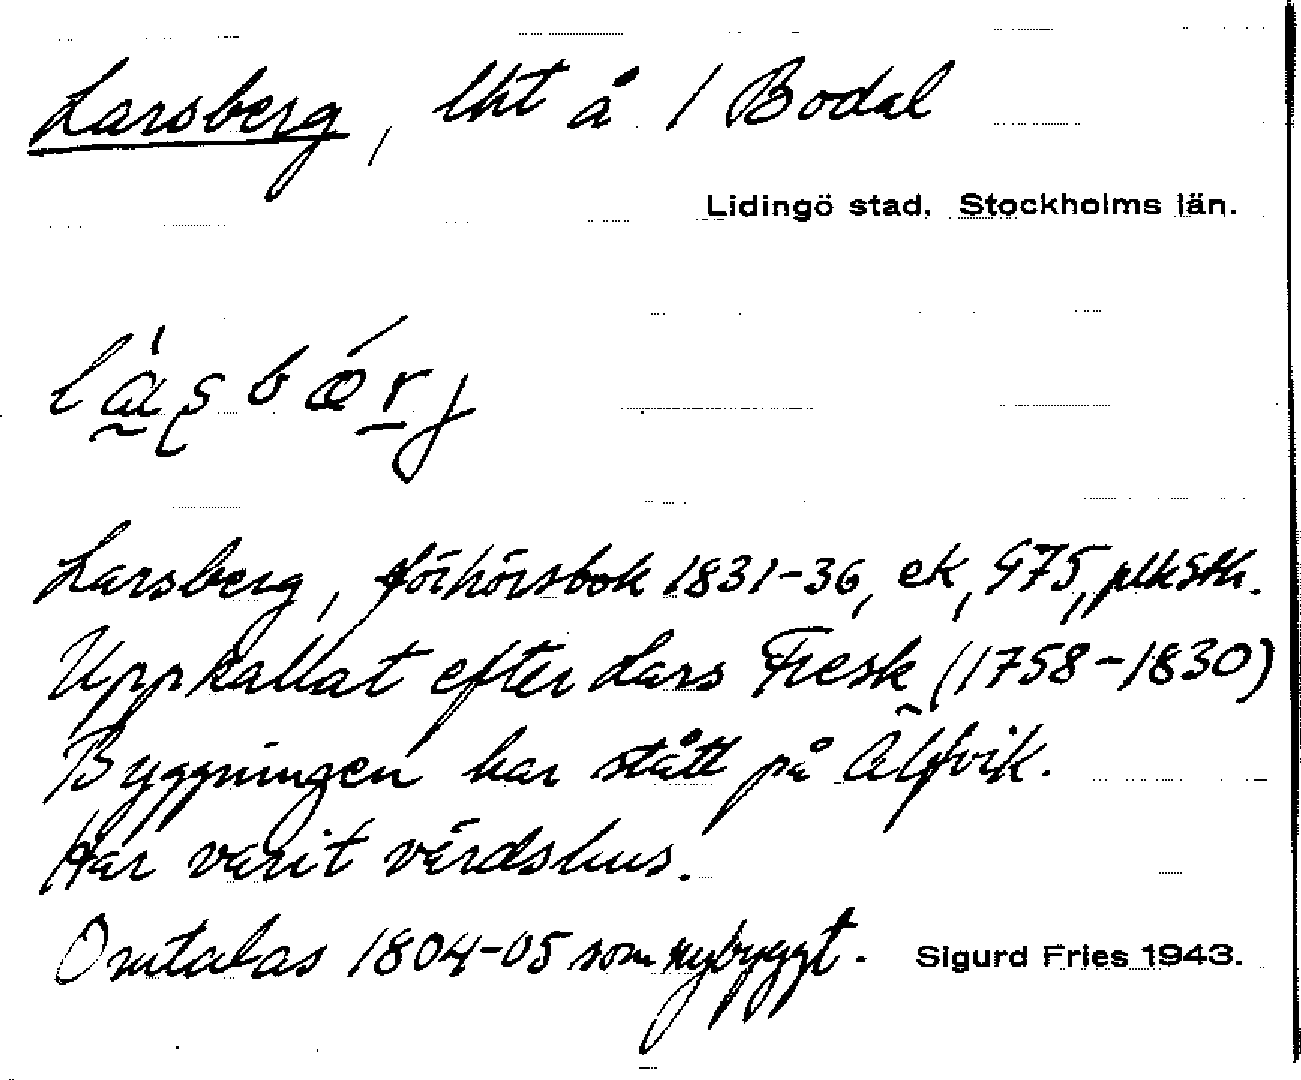 Larsberg, lht å 1 Bodal
Lidingö stad, Stockholms län.
làʂbǽrj
Larsberg, förhörsbok 1831-36, ek, 975,, plksth.
Uppkallat efter Lars Fresk (1758-1830)
Byggningen har stått på Älfvik.
Har varit värdshus.
Omtalas 1804-05 som nybyggt.
Sigurd Fries 1943.